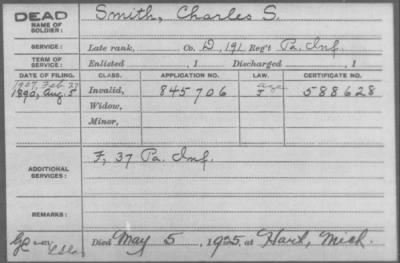 DEAD
NAME OF SOLDIER: Smith, Charles S.
SERVICE: Late rank, Co. D, 191 Reg't Pa. Inf.
TERM OF SERVICE: Enlisted , 1 Discharged , 1
DATE OF FILING. CLASS. APPLICATION NO. LAW. CERTIFICATE NO.
1907, Feb. 27 age
1890, Aug. 5 Invalid, 845706 F 588628
Widow,
Minor,
ADDITIONAL SERVICES: F, 37 Pa. Inf.
REMARKS:
Died May 5, 1925, at Hart, Mich.